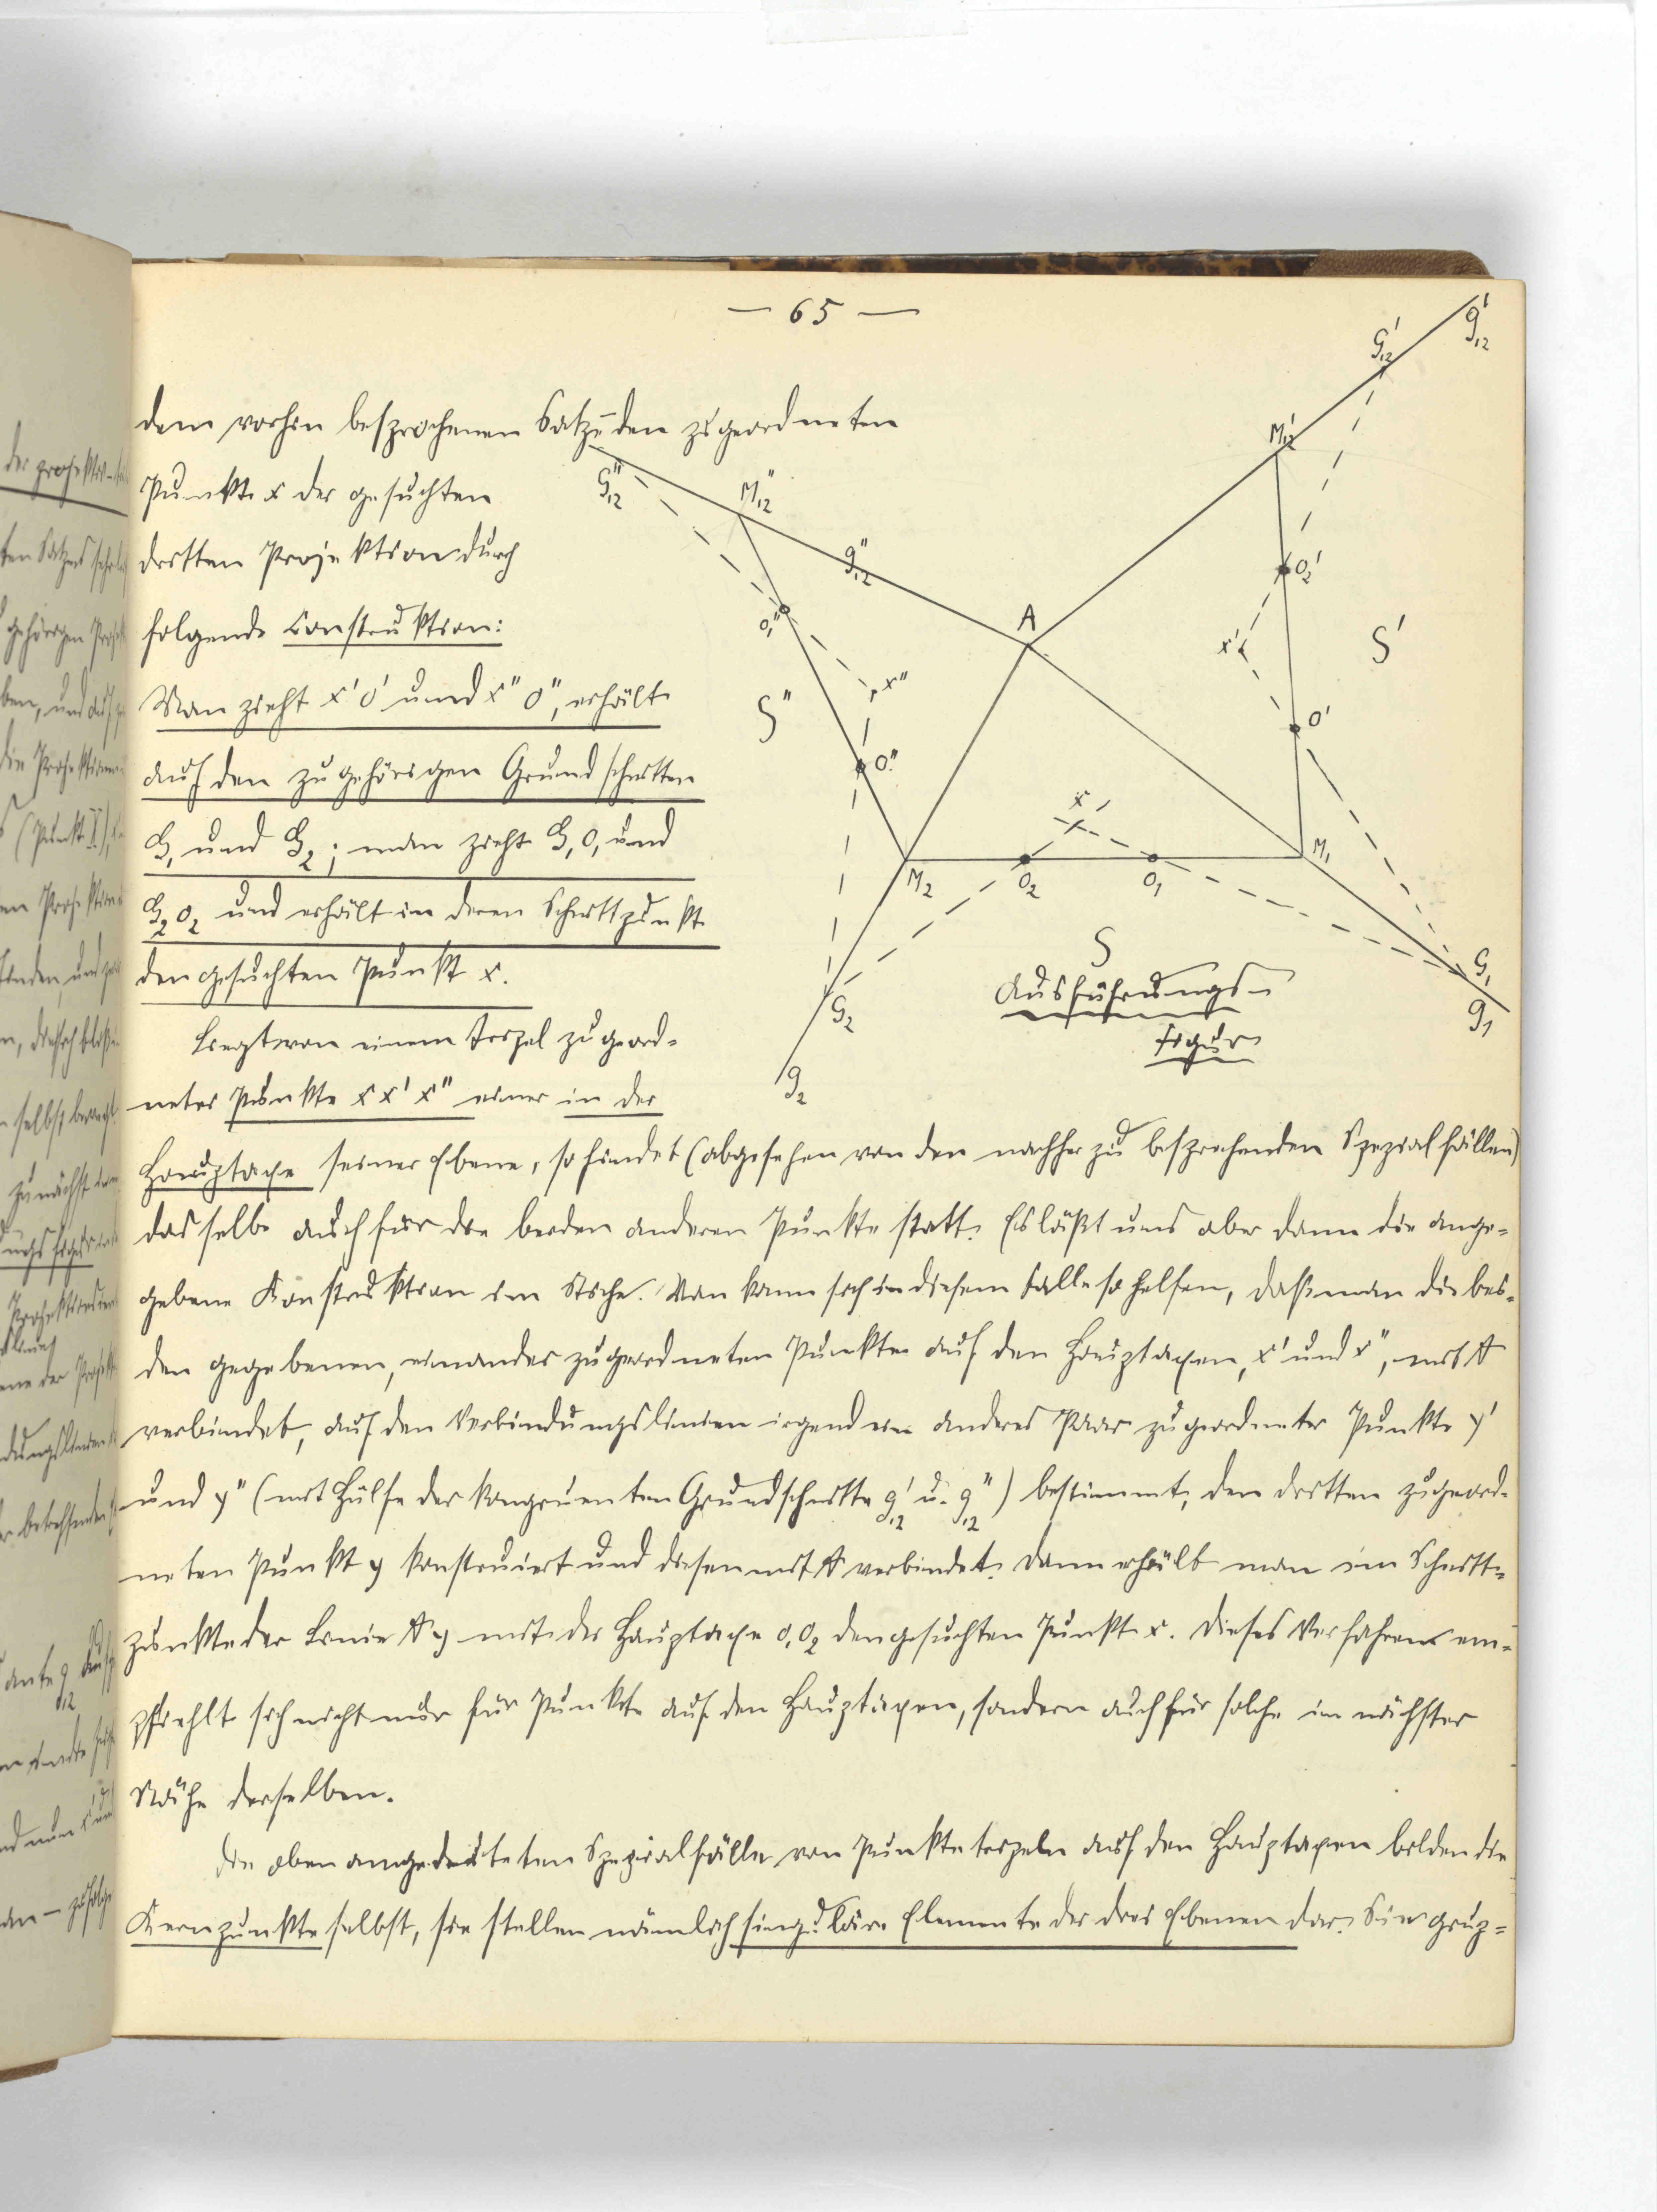 — 65 —
dem vorhin besprochenen Satze den zugeordneten
Punkt x der gesuchten
dritten Projektion durch
folgende Construktion:
Man zieht x'O' und x''O'', erhält
auf den zugehörigen Grundschnitten
G₁ und G₂; man zieht G₁O₁ und
G₂O₂ und erhält in deren Schnittpunkt
den gesuchten Punkt x.
Liegt von einem Tripel zugeord-
neter Punkte x x' x'' einer in der
Hauptaxe seiner Ebene, so findet (abgesehen von den nachher zu besprechenden Spezialfällen)
dasselbe auch für die beiden anderen Punkte statt. Es läßt uns aber dann die ange-
gebene Konstruktion im Stiche. Man kann sich in diesem Falle so helfen, daß man die bei-
den gegebenen, einander zugeordneten Punkte auf den Hauptaxen, x' und x'', mit A
verbindet, auf den Verbindungslinien irgend ein anderes Paar zugeordneter Punkte y'
und y'' (mit Hülfe der kongruenten Grundschnitte g'₁₂ u. g''₁₂) bestimmt, den dritten zugeord-
neten Punkt y konstruiert und diesen mit A verbindet. Dann erhält man im Schnitt-
punkte der Linie Ay mit der Hauptaxe O₁O₂ den gesuchten Punkt x. Dieses Verfahren em-
pfiehlt sich nicht nur für Punkte auf den Hauptaxen, sondern auch für solche in nächster
Nähe derselben.
Die oben angedeuteten Spezialfälle von Punktetripeln auf den Hauptaxen bilden die
Kernpunkte selbst, sie stellen nämlich singuläre Elemente der drei Ebenen dar. Sie grup-
g'₁₂
G'₁₂
M'₁₂
G''₁₂
M''₁₂
g''₁₂
O₂'
A
O₁''
x'
S'
x''
S''
O'
O''
x
M₂
O₂
O₁
M₁
S
G₁
g₁
G₂
g₂
Ausführungs-
figur